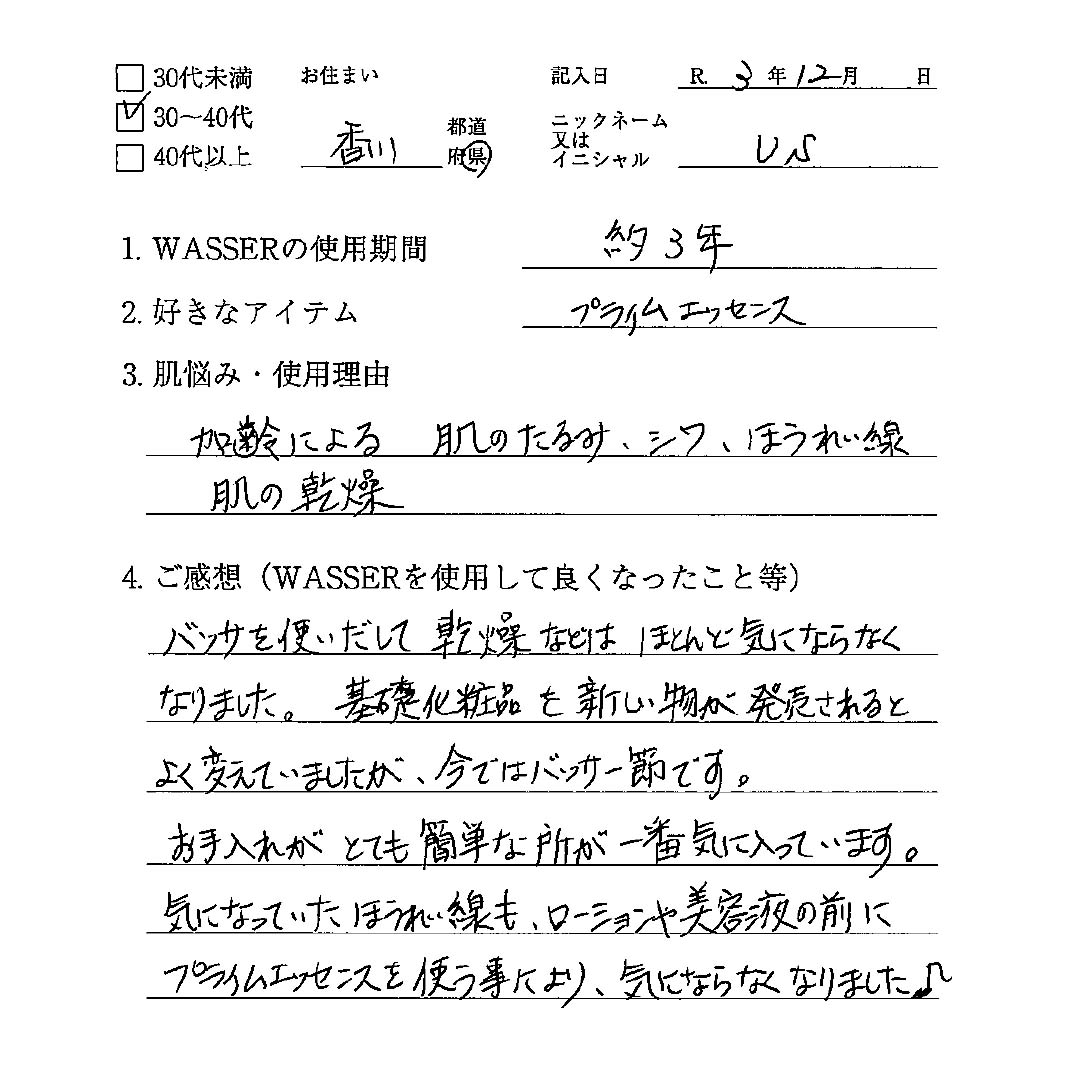 30代未満 お住まい 記入日 R. 3 年 12 月 日
30〜40代 香川 都道府県 ニックネーム又はイニシャル U N
40代以上
1. WASSERの使用期間 約3年
2. 好きなアイテム プライムエッセンス
3. 肌悩み・使用理由
加齢による 肌のたるみ、シワ、ほうれい線
肌の乾燥
4. ご感想（WASSERを使用して良くなったこと等）
バッサを使いだして 乾燥などは ほとんど気にならなく
なりました。 基礎化粧品を新しい物が発売されると
よく変えていましたが、今ではバッサ一節です。
お手入れが とても簡単な所が一番気に入っています。
気になっていたほうれい線も、ローションや美容液の前に
プライムエッセンスを使う事により、気にならなくなりました♪